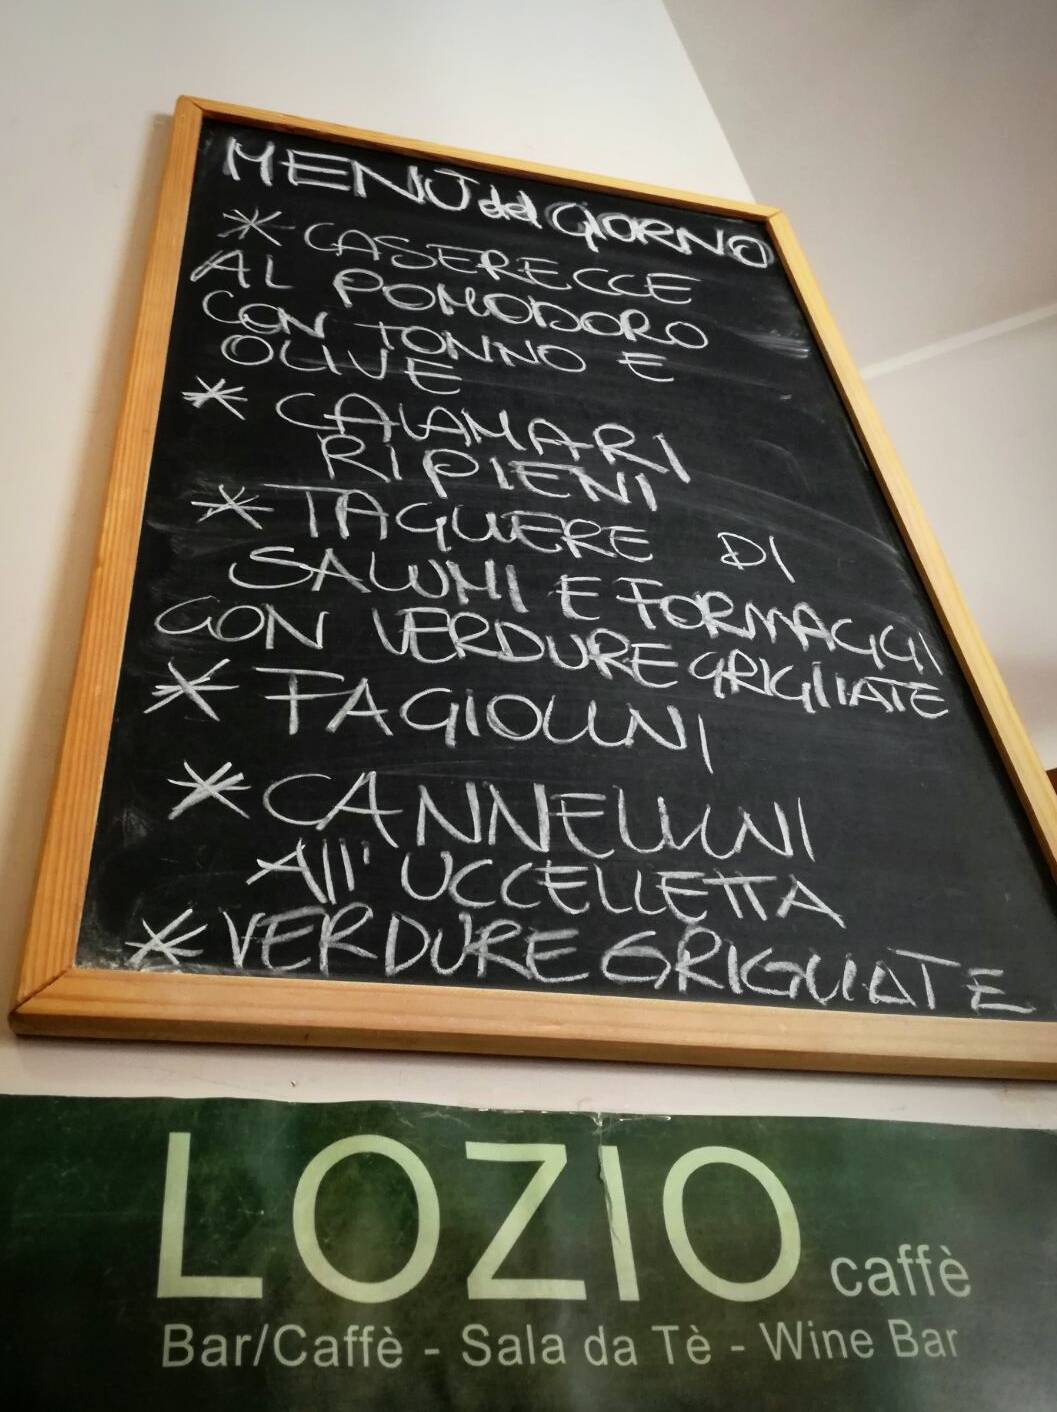 MENÙ del GIORNO
* CASERECCE
AL POMODORO
CON TONNO E
OLIVE
* CALAMARI
RIPIENI
* TAGLIERE DI
SALUMI E FORMAGGI
CON VERDURE GRIGLIATE
* FAGIOLINI
* CANNELLINI
All' UCCELLETTA
* VERDURE GRIGLIATE
LOZIO caffè
Bar/Caffè - Sala da Tè - Wine Bar